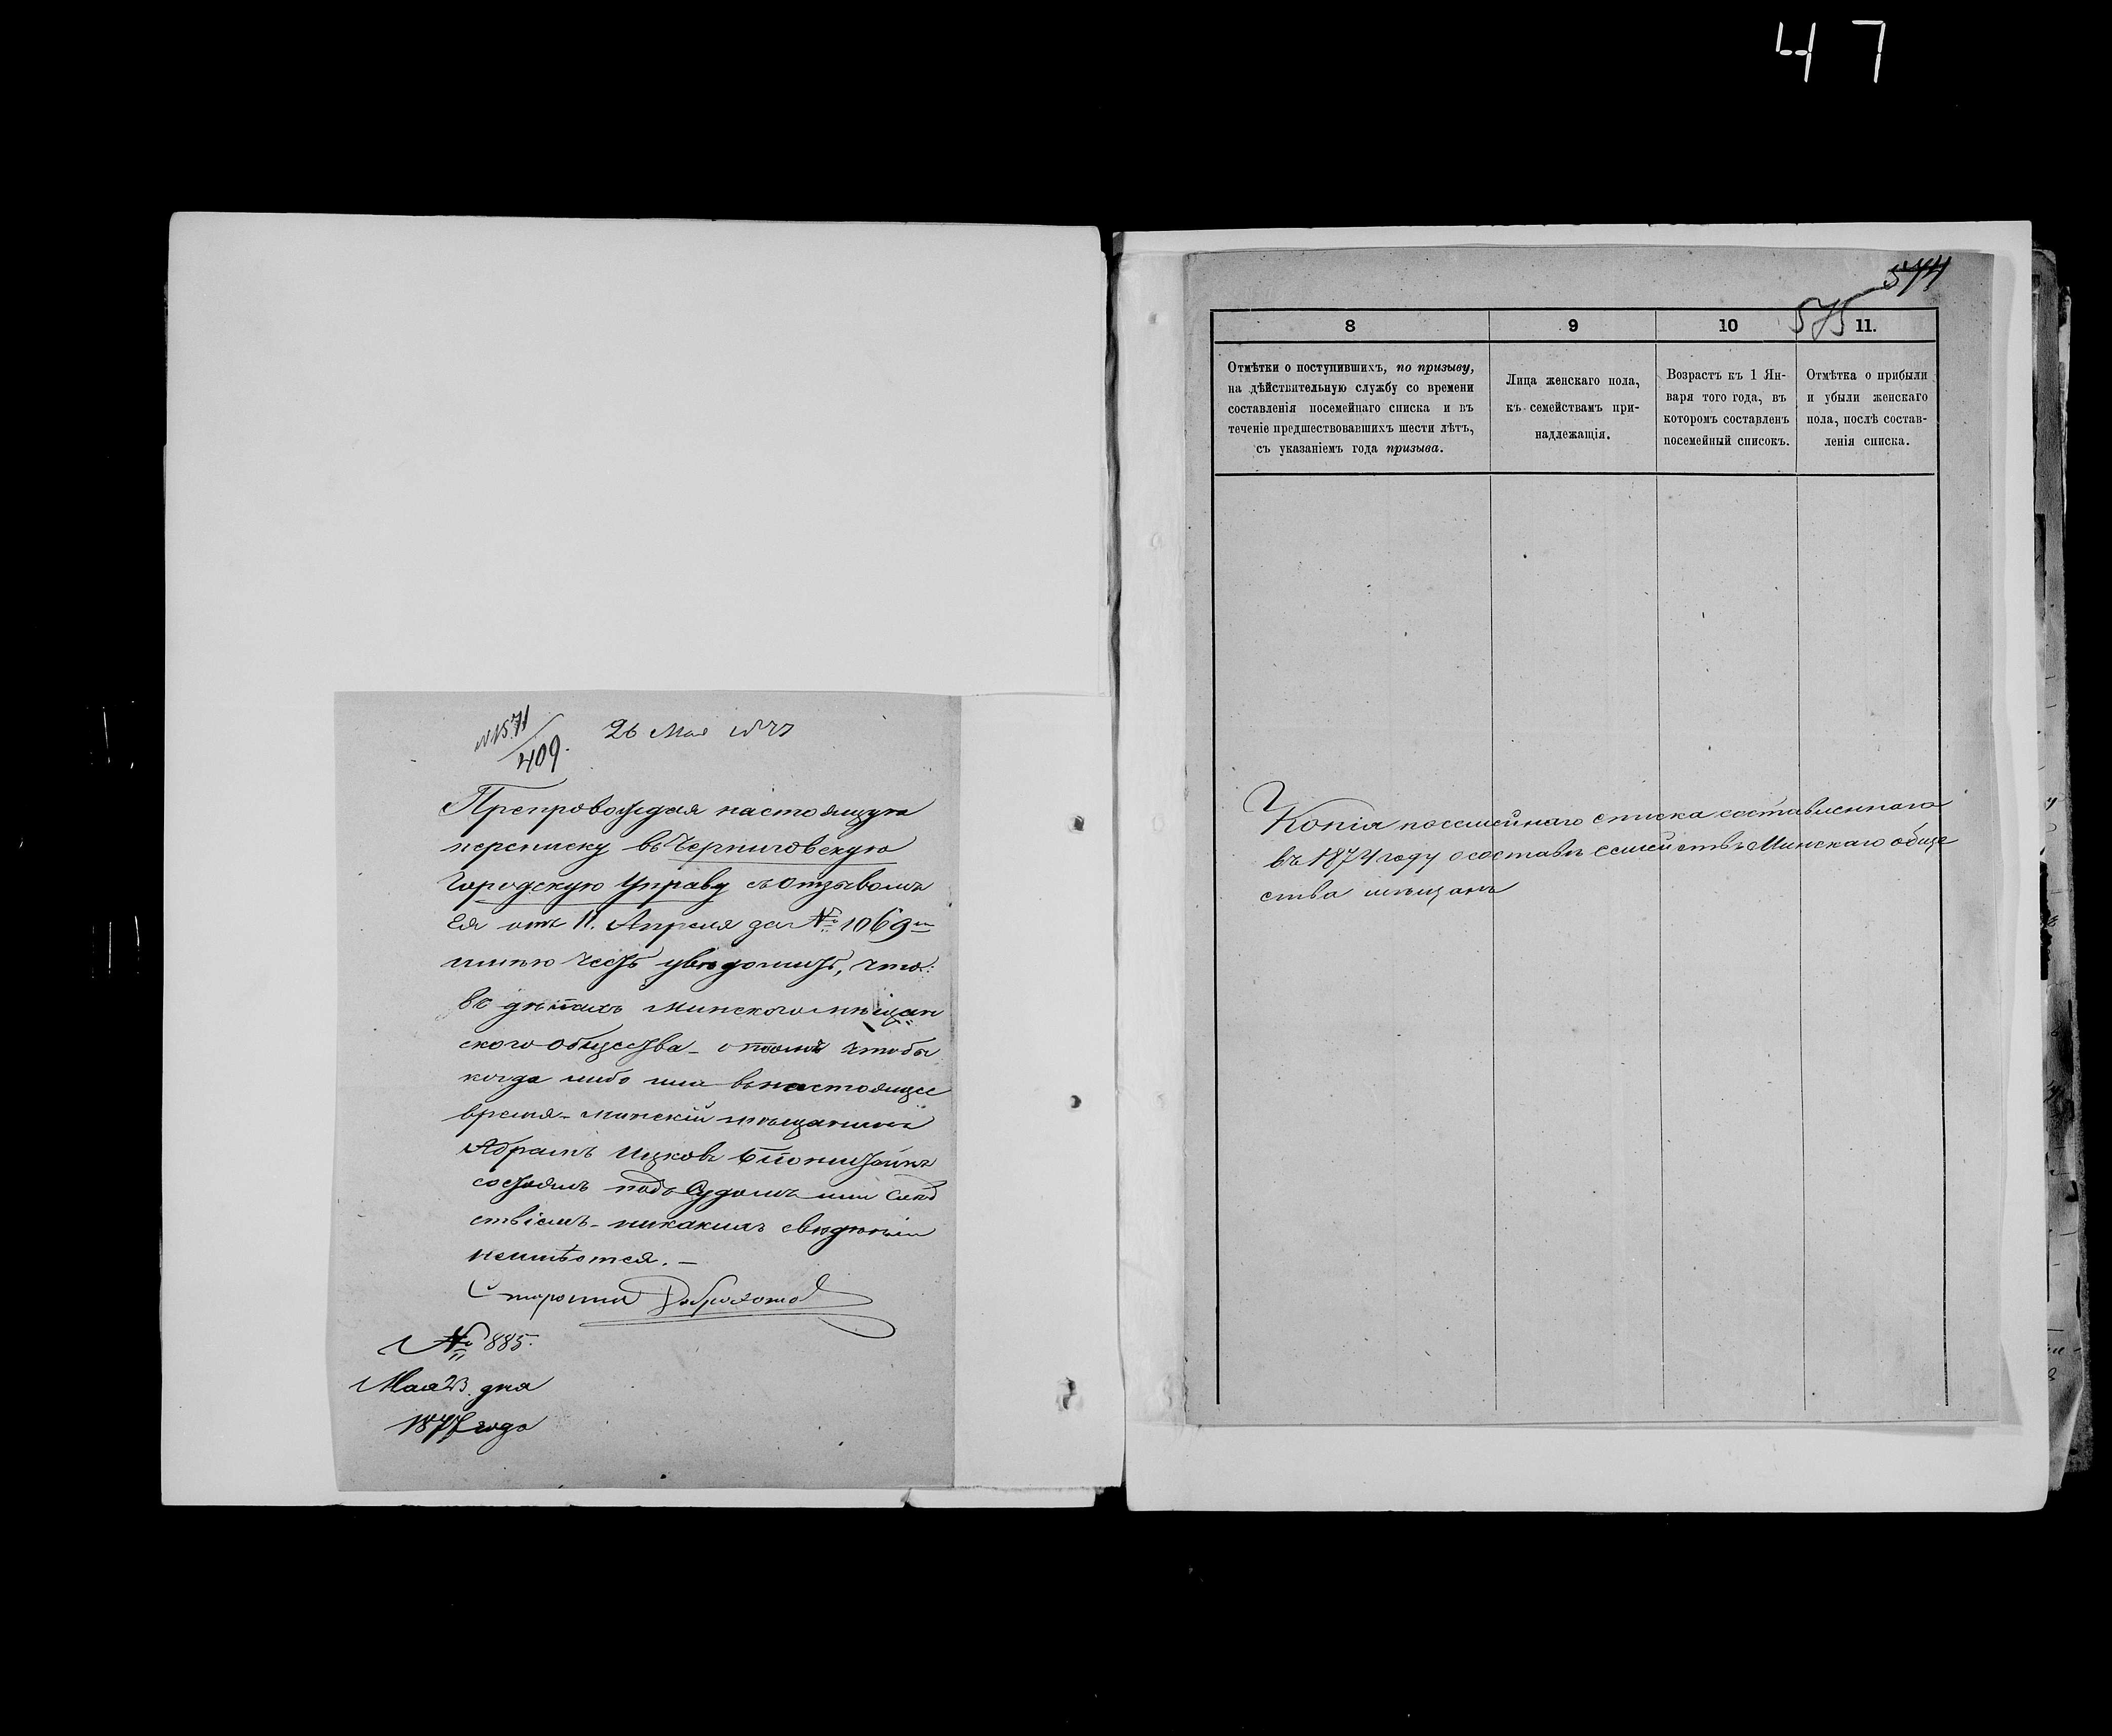 47
№ 1571
409.
26 Мая 1877
Препровождая настоящую
переписку въ Черниговскую
Городскую Управу съ отзывомъ
Ея отъ 11. Апреля за № 1069
имѣю честь увѣдомить, что:
въ дѣлахъ Минского мѣщан
ского общества - о томъ чтобы
когда либо или въ настоящее
время - минскій мѣщанинъ
Абрамъ Ицковъ
состоялъ подъ Судомъ или Слѣд
ствіемъ - никакихъ свѣдѣній
неимѣется. –
Староста
№ 885.
Мая 23. дня
1877 года
574
575
8
9
10
11.
Отмѣтки о поступившихъ, по призыву,
на дѣйствительную службу со времени
составленія посемейнаго списка и въ
теченіе предшествовавшихъ шести лѣтъ,
съ указаніемъ года призыва.
Лица женскаго пола,
къ семействамъ при-
надлежащія.
Возрастъ къ 1 Ян-
варя того года, въ
которомъ составленъ
посемейный списокъ.
Отмѣтка о прибыли
и убыли женскаго
пола, послѣ состав-
ленія списка.
Копія посемейнаго списка составленнаго
въ 1874 году о составѣ семействъ Минскаго обще
ства мѣщанъ